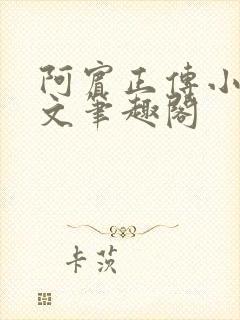 阿賓正傳小
文筆趣閣
卡茨